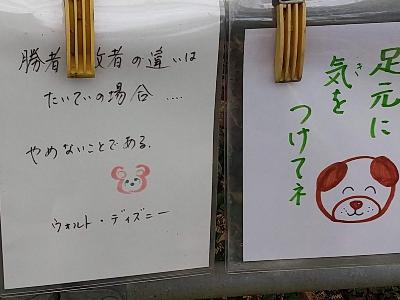 勝者 敗者の違いは
たいていの場合 ....
やめないことである.
ウォルト・ディズニー
足元に
気を
き
つけてネ